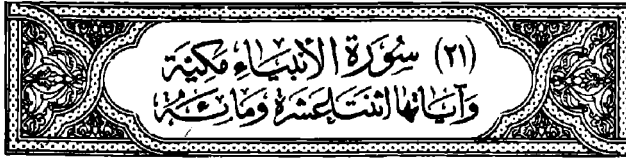 (٢١) سُورَةُ الأَنْبِيَاءِ مَكِّيَّةٌ
وَآيَاتُهَا اثْنَتَا عَشَرَةَ وَمَائِةٌ